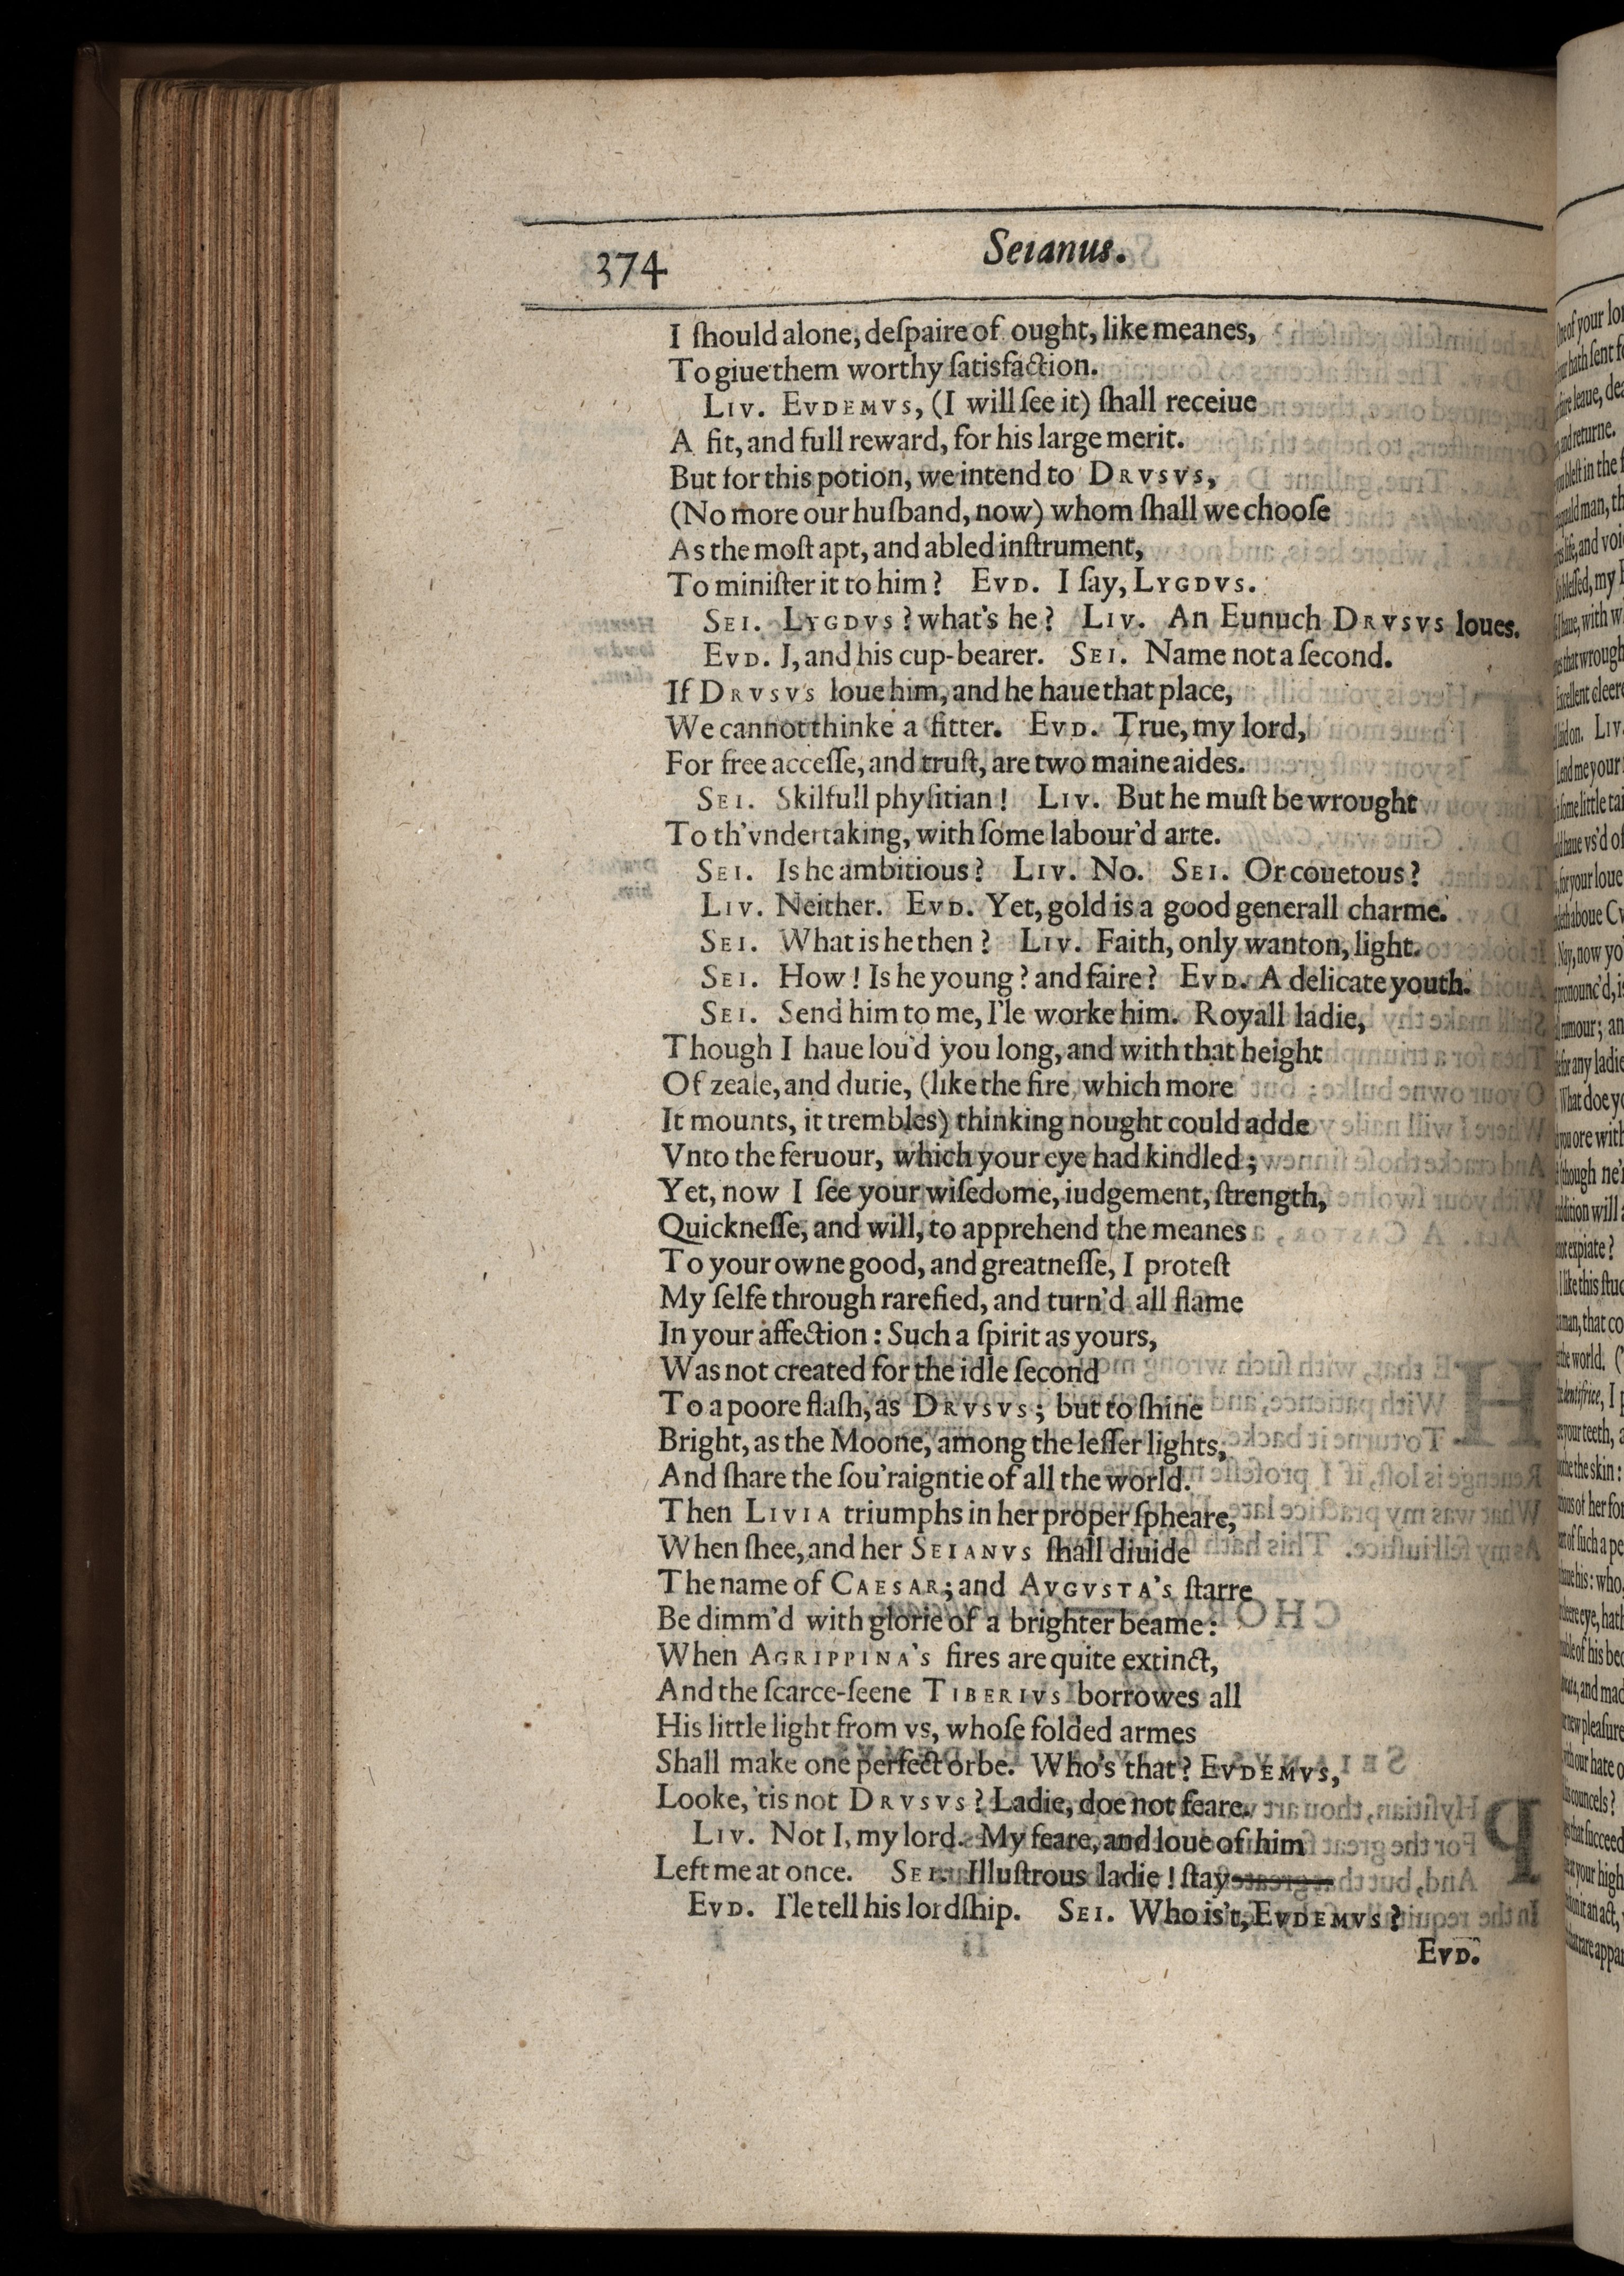 374
Seianus.
I ſhould alone, deſpaire of ought, like meanes,
To giue them worthy ſatisfaction.
LIV. EVDEMVS, (I will ſee it) ſhall receiue
A fit, and full reward, for his large merit.
But for this potion, we intend to DRVSVS,
(No more our huſband, now) whom ſhall we chooſe
As the moſt apt, and abled inſtrument,
To miniſter it to him? EVD. I ſay, LYGDVS.
SEI. LYGDVS? what's he? LIV. An Eunuch DRVSVS loues.
EVD. I, and his cup-bearer. SEI. Name not a ſecond.
If DRVSVS loue him, and he haue that place,
We cannot thinke a fitter. EVD. True, my lord,
For free acceſſe, and truſt, are two maine aides.
SEI. Skilfull phyſitian! LIV. But he muſt be wrought
To th'vndertaking, with ſome labour'd arte.
SEI. Is he ambitious? LIV. No. SEI. Or couetous?
LIV. Neither. EVD. Yet, gold is a good generall charme.
SEI. What is he then? LIV. Faith, only wanton, light.
SEI. How! Is he young? and faire? EVD. A delicate youth.
SEI. Send him to me, I'le worke him. Royall ladie,
Though I haue lou'd you long, and with that height
Of zeale, and dutie, (like the fire, which more
It mounts, it trembles) thinking nought could adde
Vnto the feruour, which your eye had kindled;
Yet, now I ſee your wiſedome, iudgement, ſtrength,
Quickneſſe, and will, to apprehend the meanes
To your owne good, and greatneſſe, I proteſt
My ſelfe through rarefied, and turn'd all flame
In your affection: Such a ſpirit as yours,
Was not created for the idle ſecond
To a poore flaſh, as DRVSVS; but to ſhine
Bright, as the Moone, among the leſſer lights,
And ſhare the ſou'raigntie of all the world.
Then LIVIA triumphs in her proper ſpheare,
When ſhee, and her SEIANVS ſhall diuide
The name of CAESAR; and AVGVSTA's ſtarre
Be dimm'd with glorie of a brighter beame:
When AGRIPPINA's fires are quite extinct,
And the ſcarce-ſeene TIBERIVS borrowes all
His little light from vs, whoſe folded armes
Shall make one perfect orbe. Who's that? EVDEMVS,
Looke, 'tis not DRVSVS? Ladie, doe not feare.
LIV. Not I, my lord. My feare, and loue of him
Left me at once. SEI. Illuſtrous ladie! ſtay——
EVD. I'le tell his lordſhip. SEI. Who is't, EVDEMVS?
EVD.